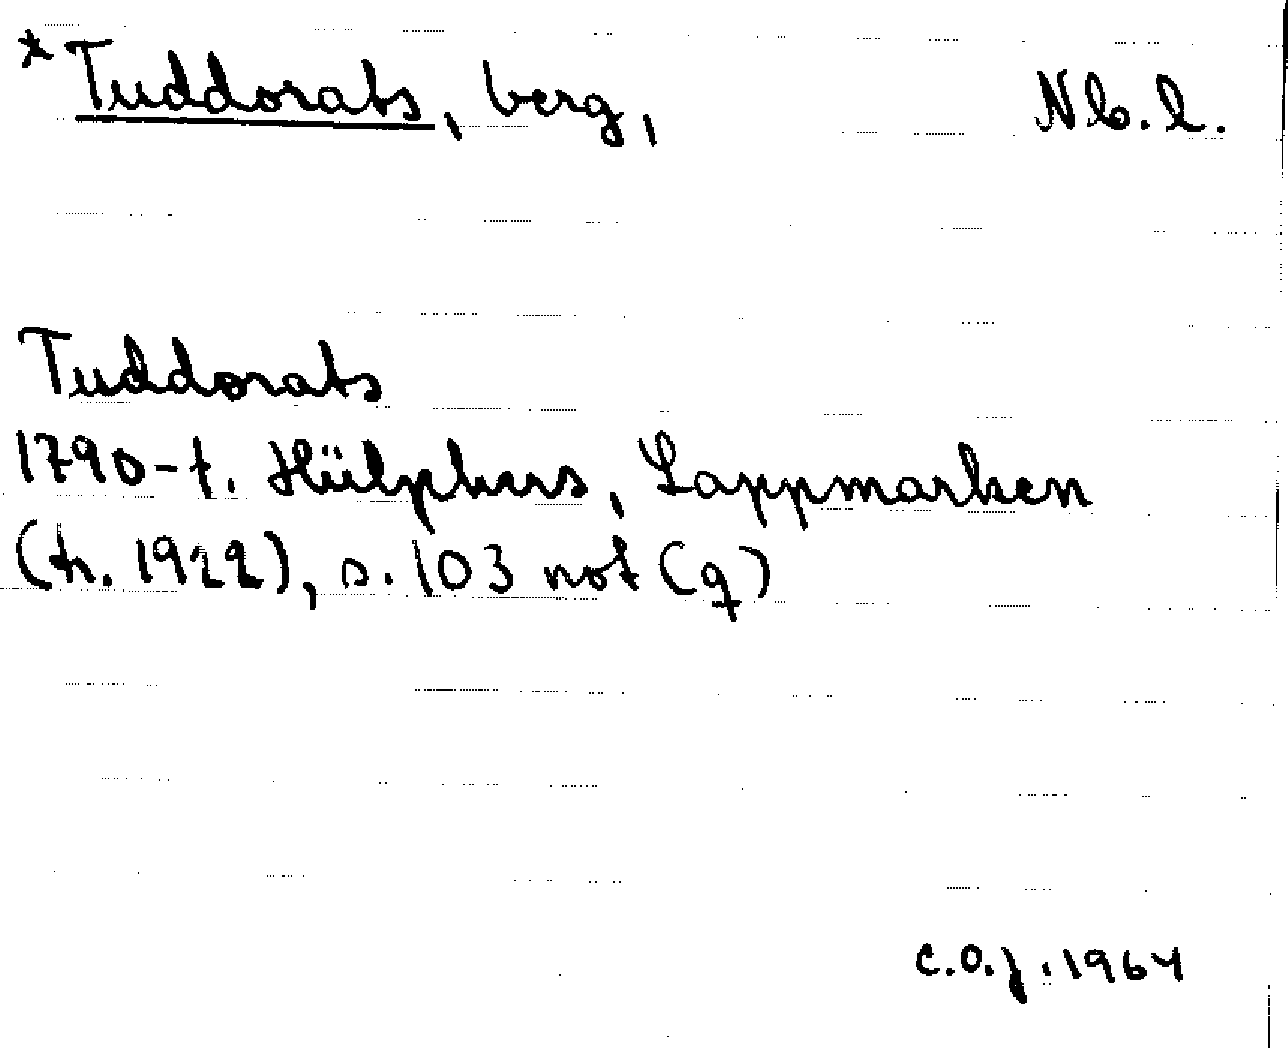 *Tuddorats, berg, Nb. l.
Tuddorats
1790-t. Hülphers, Lappmarken
(tr. 1922), s. 103 not (q)
C.O.J. 1964